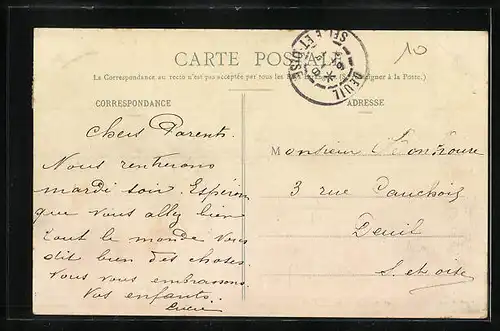 10
CARTE POSTALE
DEUIL
SEINE-ET-OISE
La Correspondance au recto n'est pas acceptée par tous les
(Se renseigner à la Poste.)
CORRESPONDANCE
ADRESSE
Chers Parents.
Nous rentrerons
mardi soir. Espérons
que vous allez bien
tout le monde vous
dit bien des choses.
Vous vous embrassons.
Vos enfants.
Monsieur
3 rue Cauchoix
Deuil
S. et oise